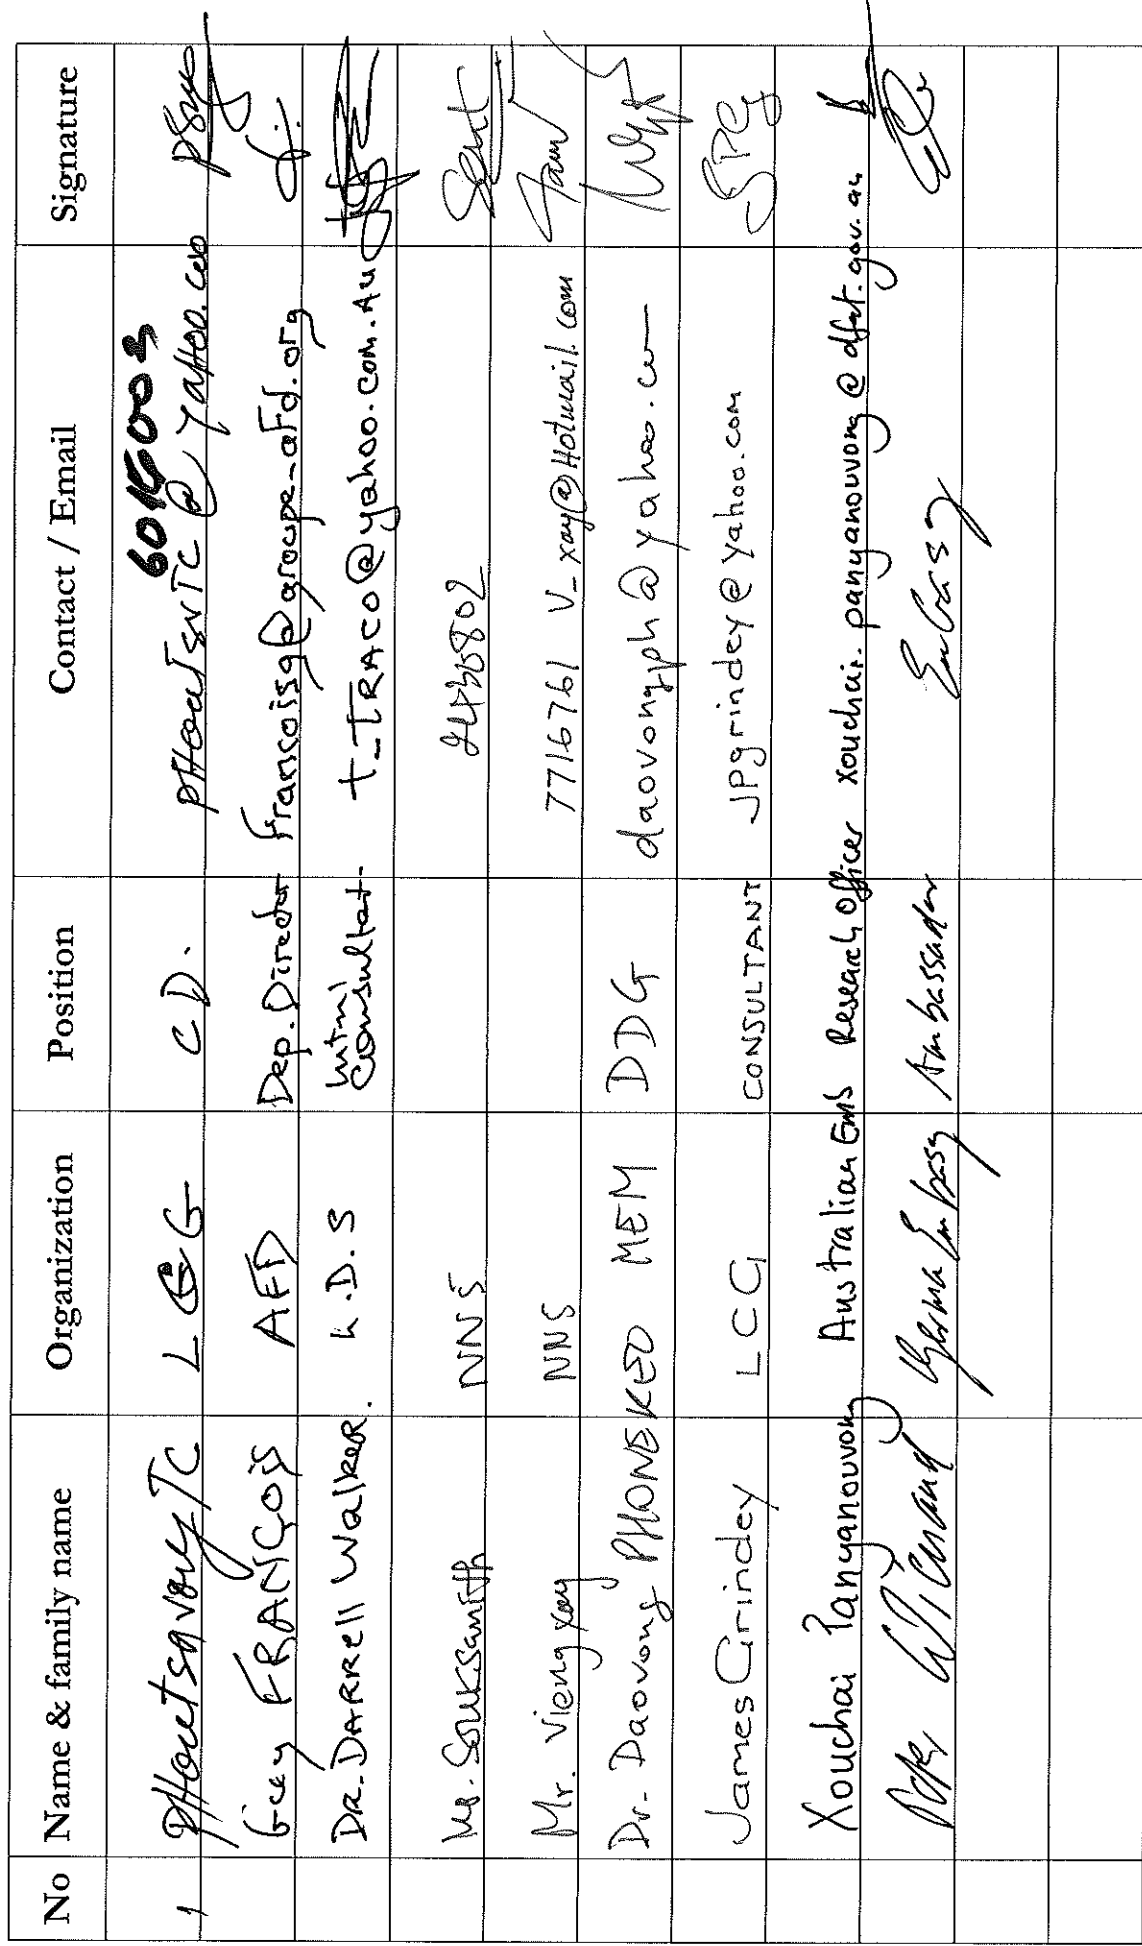 No Name & family name Organization Position Contact / Email Signature
6015003
1 PHoutsavay TC L G G C D. pHoutsavTC@yaHoo.com
Guy FRANÇOIS AFD Dep. Director francoisg@groupe-afd.org
DR. DARRell WalkeR. K.D.S Intnl Consultat. t_TRACO@yahoo.com.Au
Mr. Souksamith NNS
Mr. Viengxay NNS 7716761 V_xay@Hotmail.com
Dr. Daovong PHONEKEO MEM DDG daovongph@yahoo.com
James Grindey LCG CONSULTANT JPgrindey@yahoo.com JPG
Xouchai Panyanouvong Australian Emb Research Officer xouchai.panyanouvong@dfat.gov.au
Wienand German Embassy Ambassador Embassy